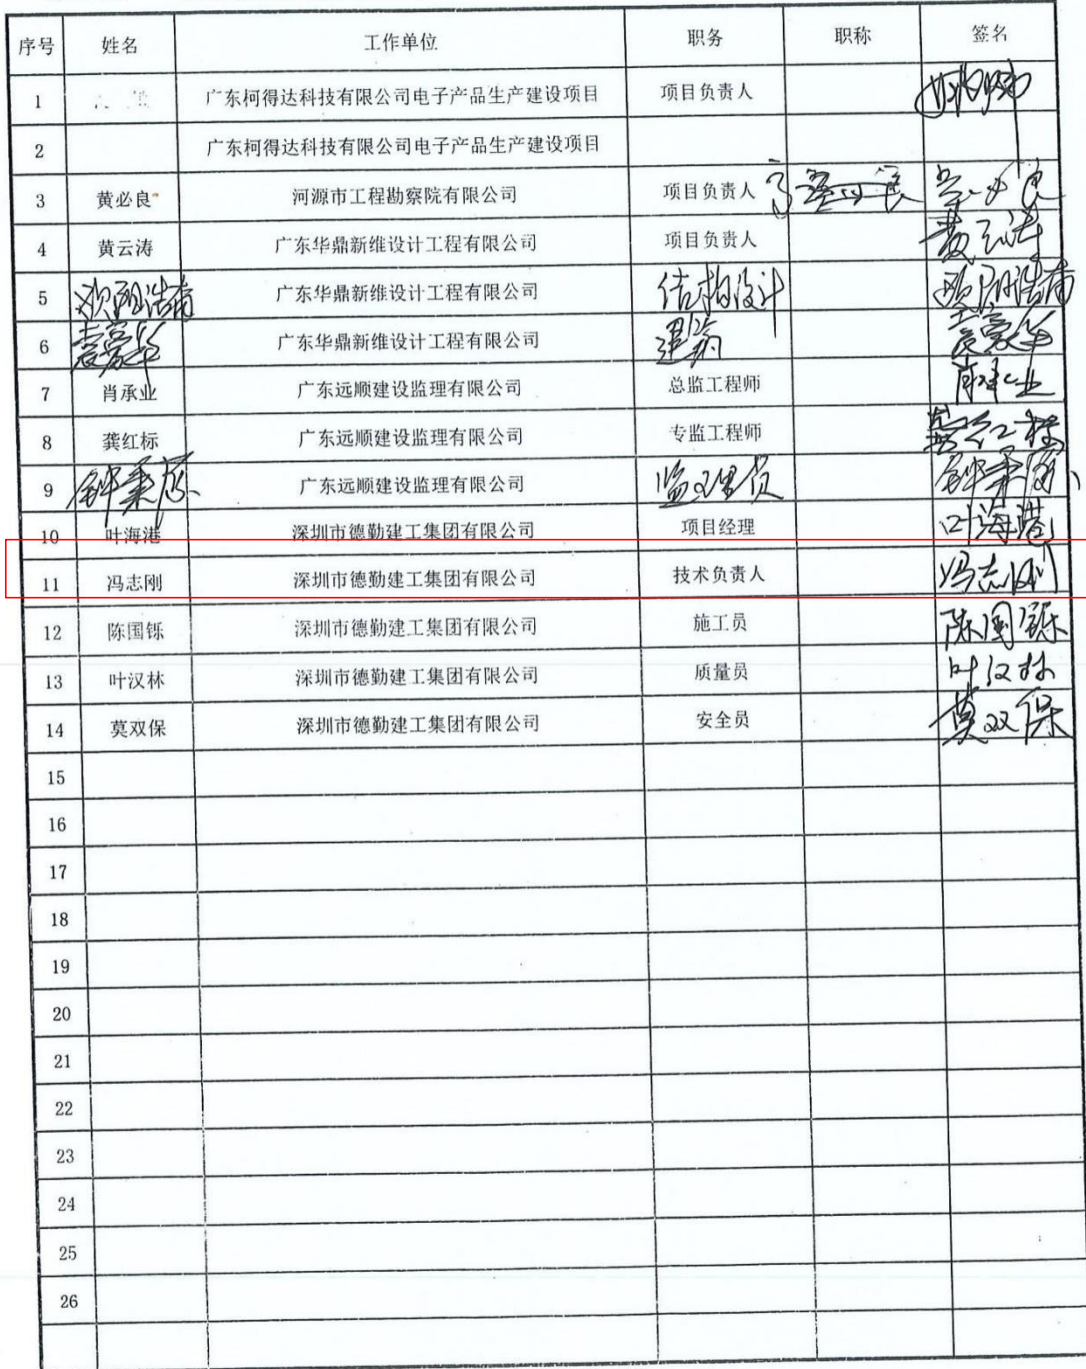 序号 姓名 工作单位 职务 职称 签名
1 广东柯得达科技有限公司电子产品生产建设项目 项目负责人
2 广东柯得达科技有限公司电子产品生产建设项目
3 黄必良 河源市工程勘察院有限公司 项目负责人
4 黄云涛 广东华鼎新维设计工程有限公司 项目负责人 黄云涛
5 欧阳浩南 广东华鼎新维设计工程有限公司 结构设计 欧阳浩南
6 袁豪华 广东华鼎新维设计工程有限公司 建筑 袁豪华
7 肖承业 广东远顺建设监理有限公司 总监工程师 肖承业
8 龚红标 广东远顺建设监理有限公司 专监工程师 龚红标
9 广东远顺建设监理有限公司 监理员
10 叶海港 深圳市德勤建工集团有限公司 项目经理 叶海港
11 冯志刚 深圳市德勤建工集团有限公司 技术负责人 冯志刚
12 陈国铄 深圳市德勤建工集团有限公司 施工员 陈国铄
13 叶汉林 深圳市德勤建工集团有限公司 质量员 叶汉林
14 莫双保 深圳市德勤建工集团有限公司 安全员 莫双保
15
16
17
18
19
20
21
22
23
24
25
26